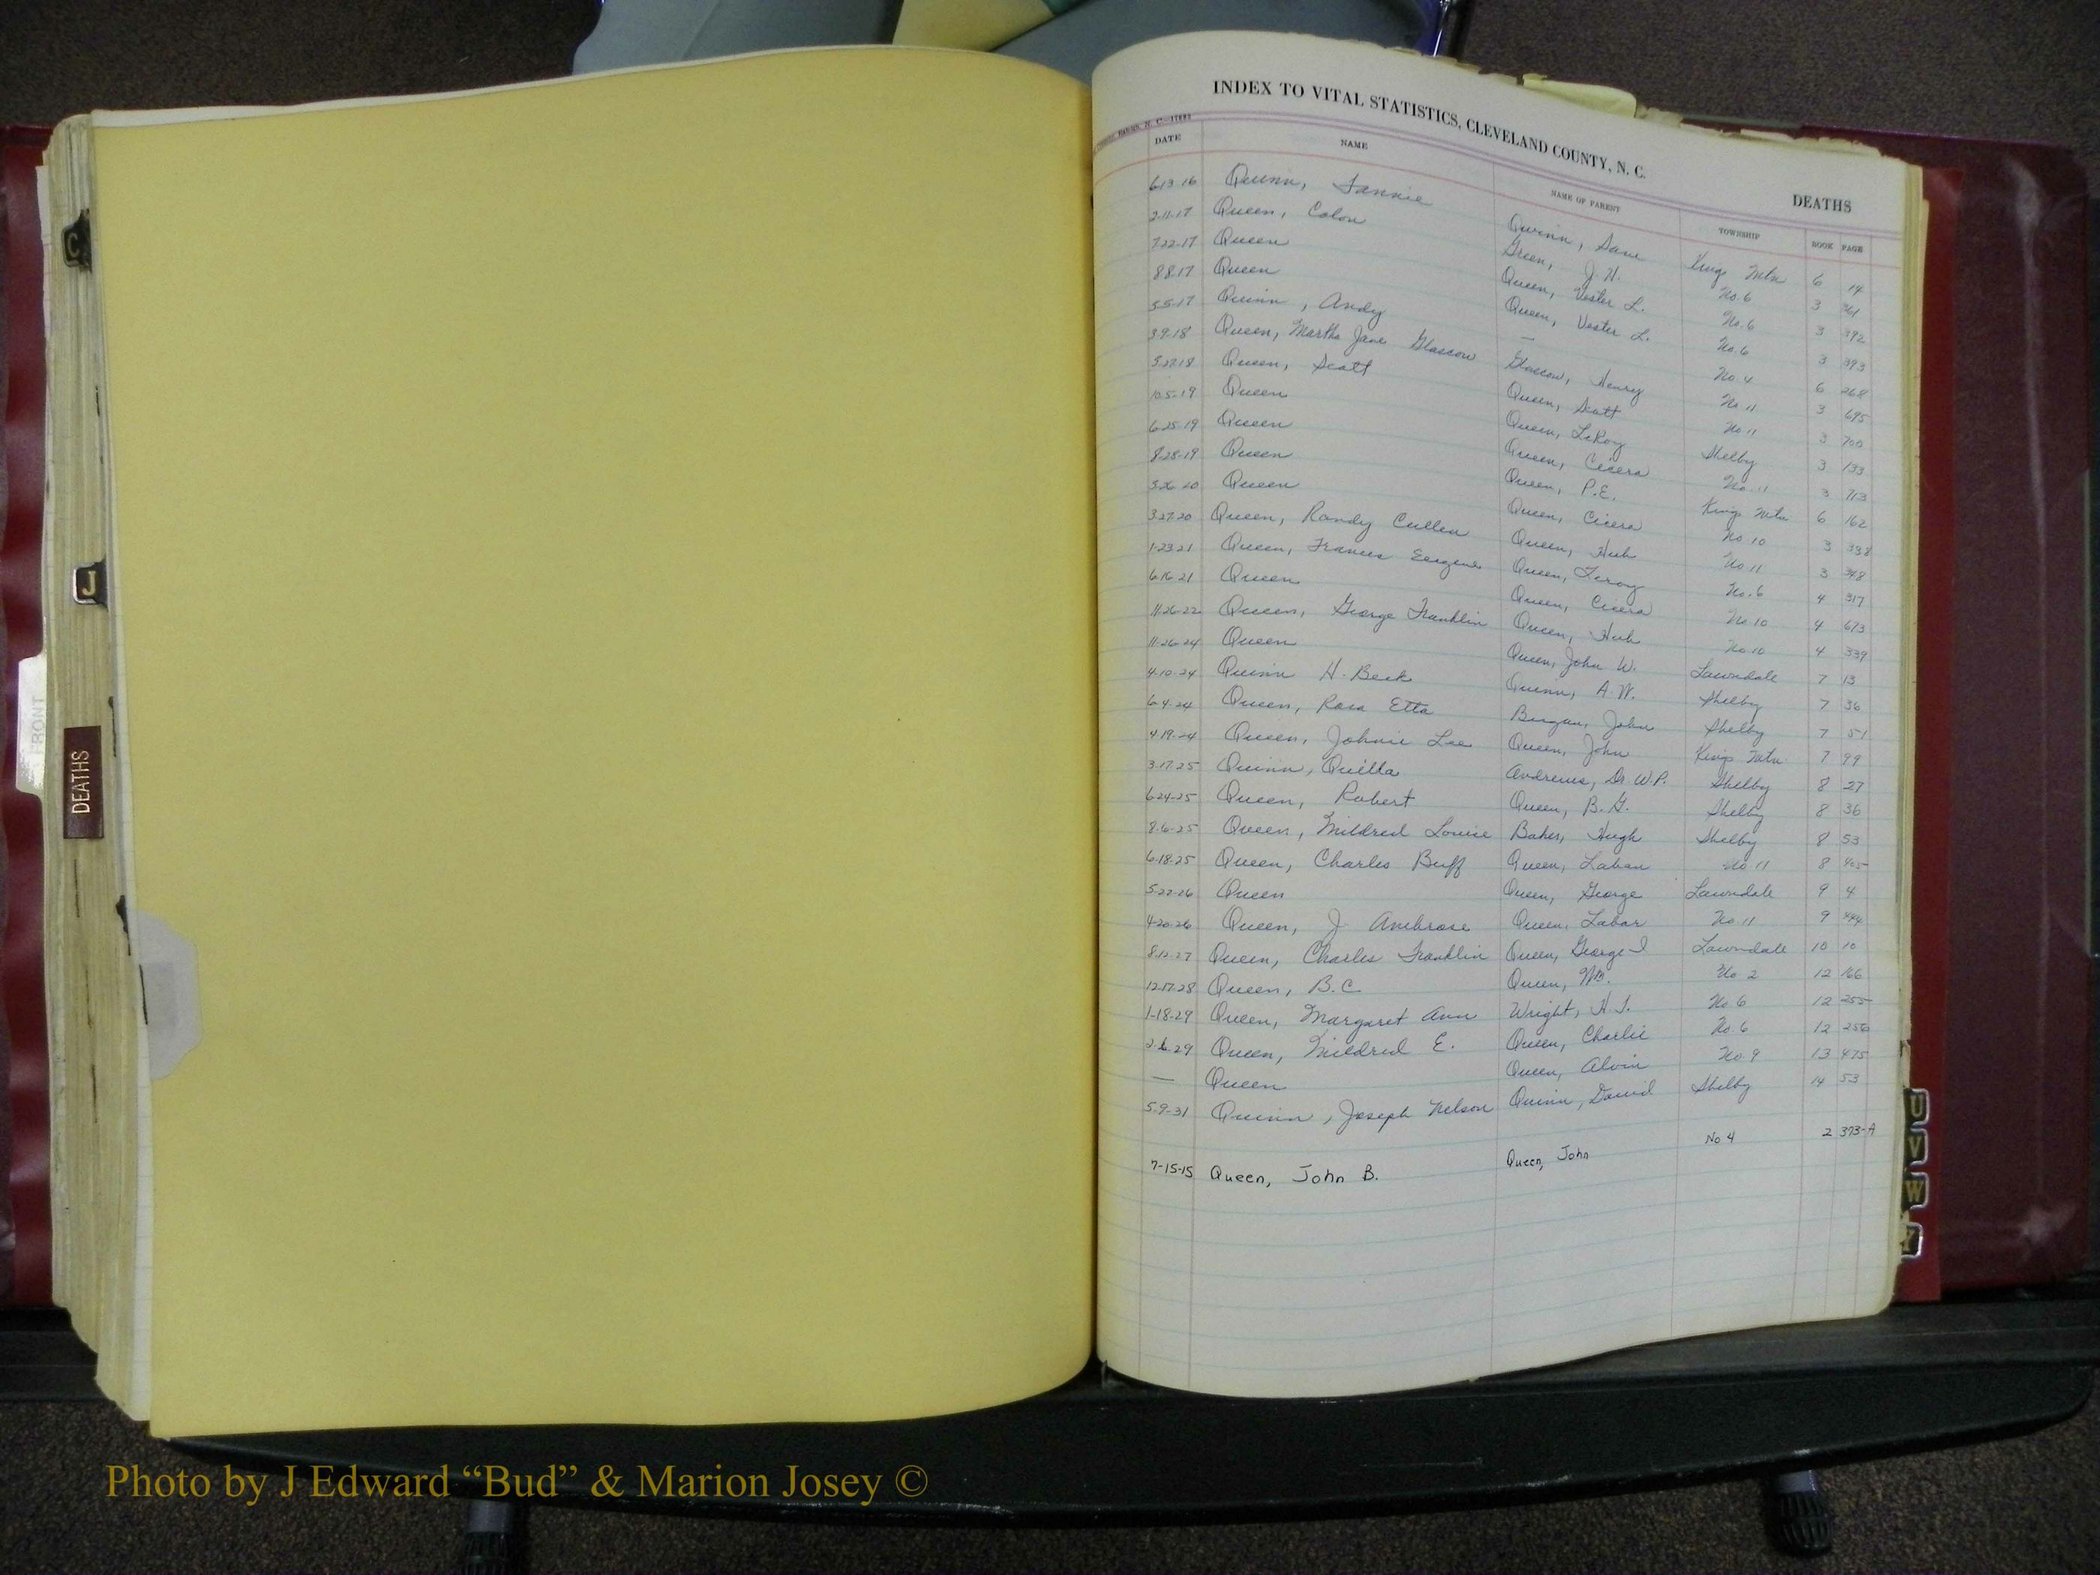 C
J
FRONT
DEATHS
INDEX TO VITAL STATISTICS, CLEVELAND COUNTY, N. C.
DEATHS
DATE NAME NAME OF PARENT TOWNSHIP BOOK PAGE
6-13-16 Quinn, Fannie Quinn, Dave Kings Mtn 6 14
2-11-17 Queen, Colon Green, J. H. No. 6 3 361
7-22-17 Queen Queen, Vester L. No. 6 3 392
8-8-17 Queen Queen, Vester L. No. 6 3 393
5-5-17 Quinn, Andy — No. 4 6 268
3-9-18 Queen, Martha Jane Glascow Glascow, Henry No. 11 3 695
5-27-18 Queen, Scott Queen, Scott No 11 3 700
10-5-19 Queen Queen, LeRoy Shelby 3 133
6-25-19 Queen Queen, Cicero No. 11 3 713
8-28-19 Queen Queen, P.E. Kings Mtn 6 162
3-26-20 Queen Queen, Cicero No 10 3 338
3-27-20 Queen, Randy Cullen Queen, Hub No 11 3 348
1-23-21 Queen, Frances Eugene Queen, Leroy No. 6 4 317
6-16-21 Queen Queen, Cicero No 10 4 673
11-26-22 Queen, George Franklin Queen, Hub No. 10 4 339
11-26-24 Queen Queen, John W. Lawndale 7 13
4-10-24 Quinn H. Beck Quinn, A. W. Shelby 7 36
6-4-24 Queen, Rosa Etta John Shelby 7 51
4-19-24 Queen, Johnie Lee Queen, John Kings Mtn 7 99
3-17-25 Quinn, Quilla Andrews, Dr. W.P. Shelby 8 27
6-24-25 Queen, Robert Queen, B. G. Shelby 8 36
8-6-25 Queen, Mildred Louise Baker, Hugh Shelby 8 53
6-18-25 Queen, Charles Buff Queen, Laban No 11 8 405
5-22-26 Queen Queen, George Lawndale 9 4
4-20-26 Queen, J. Ambrose Queen, Labar No. 11 9 444
8-12-27 Queen, Charles Franklin Queen, George I Lawndale 10 10
12-17-28 Queen, B.C Queen, No 2 12 166
1-18-29 Queen, Margaret Ann Wright, H. T. No 6 12 255
2-6-29 Queen, Mildred E. Queen, Charlie No. 6 12 256
— Queen Queen, Alvin No. 9 13 475
5-9-31 Quinn, Joseph Nelson Quinn, David Shelby 14 53
7-15-15 Queen, John B. Queen, John No 4 2 373-A
U
V
W
Y
Photo by J Edward “Bud” & Marion Josey ©